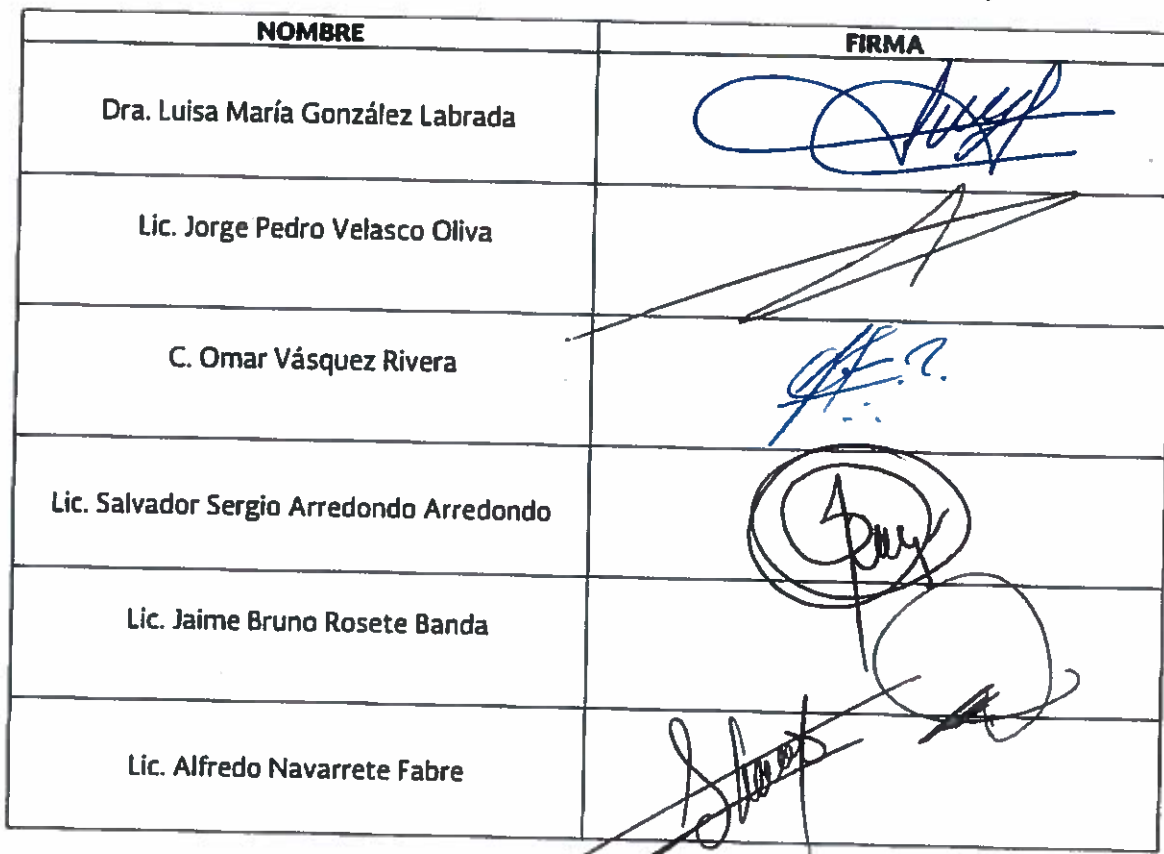 NOMBRE FIRMA
Dra. Luisa María González Labrada
Lic. Jorge Pedro Velasco Oliva
C. Omar Vásquez Rivera
Lic. Salvador Sergio Arredondo Arredondo
Lic. Jaime Bruno Rosete Banda
Lic. Alfredo Navarrete Fabre